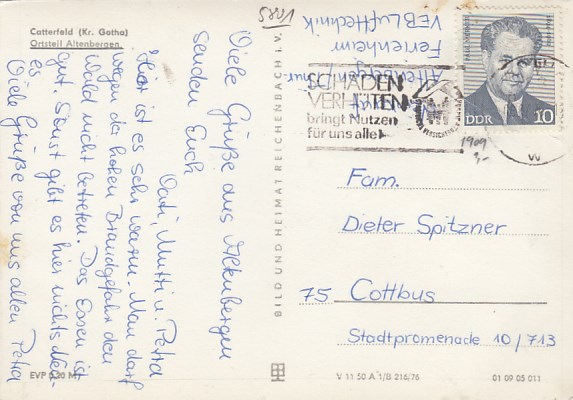 Catterfeld (Kr. Gotha)
Ortsteil Altenbergen
Viele Grüße aus Altenbergen
senden Euch
Vati, Mutti u. Petra
Hier ist es sehr warm. Man darf
wegen der hohen Brandgefahr den
Wald nicht betreten. Das Essen ist
gut. Sonst gibt es hier nichts Neu-
es
Viele Grüße von uns allen Petra
EVP 0,20 M
BILD UND HEIMAT REICHENBACH I. V.
V 11 50 A 1/B 216/76
01 09 05 011
VEB Lufttechnik
Ferienheim
SCHÄDEN
VERHÜTEN
bringt Nutzen
für uns alle
DDR
10
1909
Fam.
Dieter Spitzner
75 Cottbus
Stadtpromenade 10/713